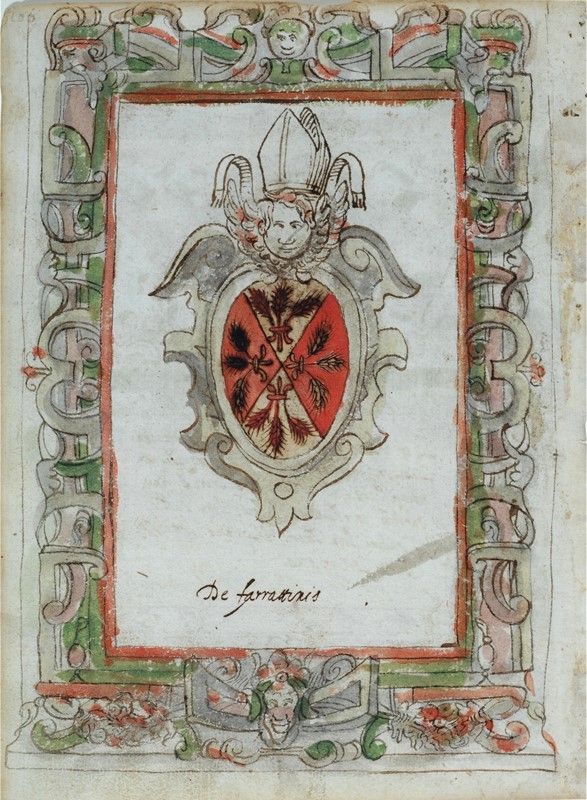 De farrattinis